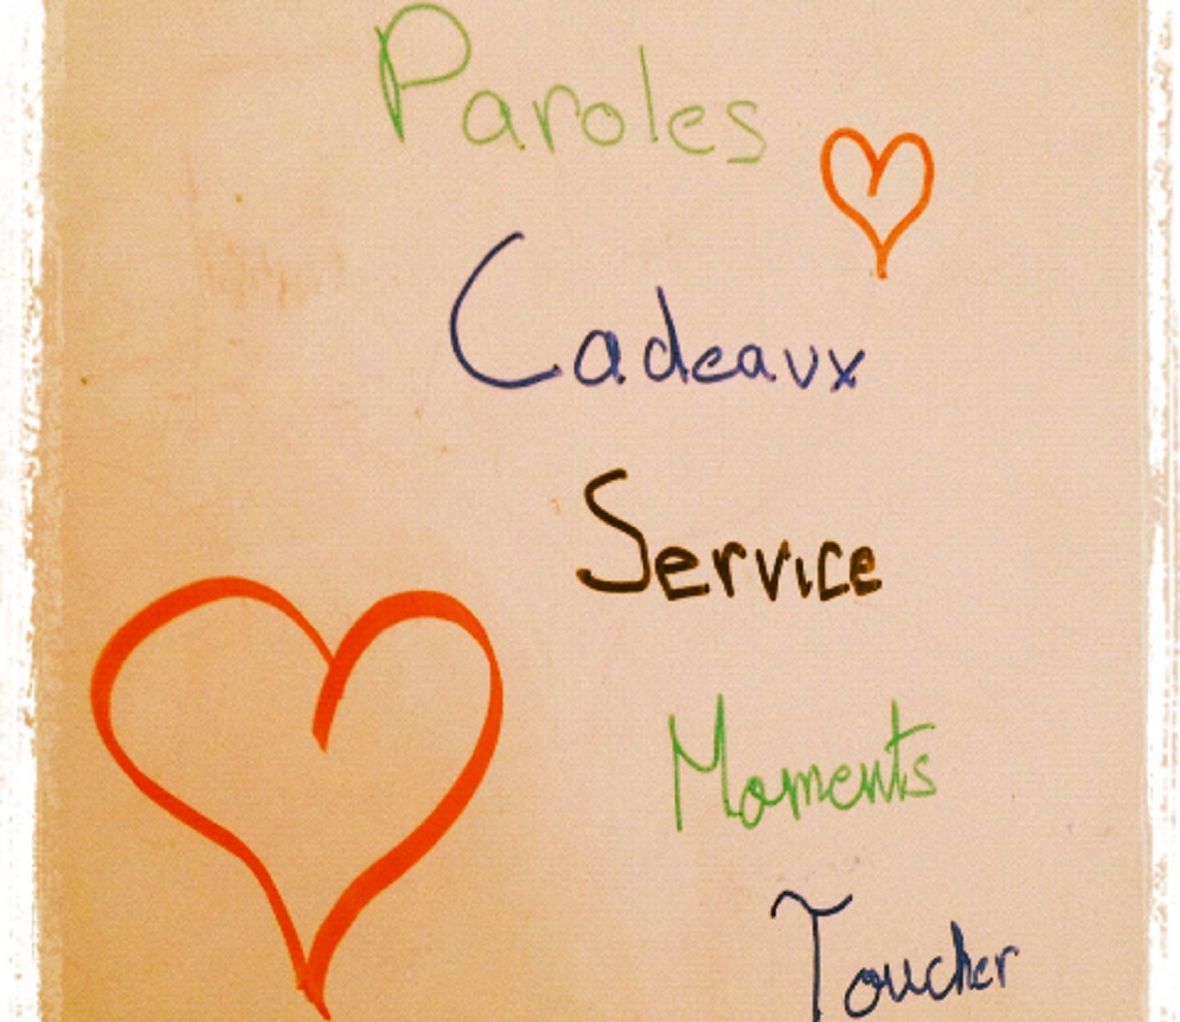 Paroles
Cadeaux
Service
Moments
Toucher